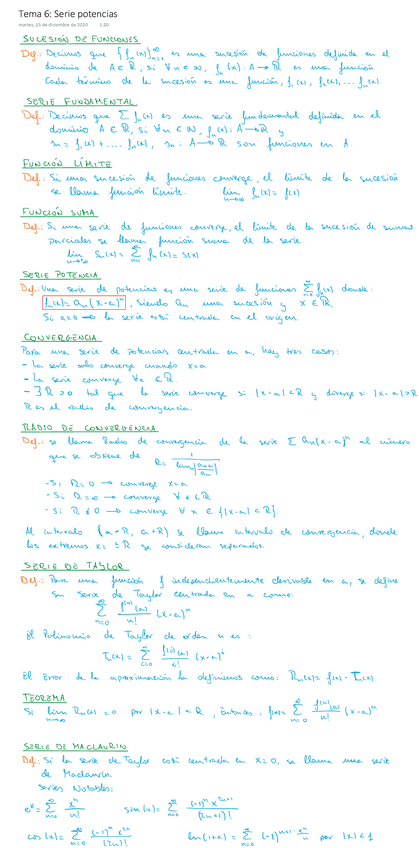 Tema 6: Serie potencias
martes, 15 de diciembre de 2020 1:20
SUCESIÓN DE FUNCIONES
Def.: Decimos que {fₙ(x)}ₙ₌₁^∞ es una sucesión de funciones definida en el
dominio de A ∈ ℝ, si ∀ n ∈ ℕ, fₙ(x): A → ℝ es una función
Cada término de la sucesión es una función, f₁(x), f₂(x), ... fₙ(x).
SERIE FUNDAMENTAL
Def.: Decimos que ∑ fₙ(x) es una serie fundamental definida en el
dominio A ∈ ℝ, si ∀ n ∈ ℕ, fₙ(x): A → ℝ y
sₙ = f₁(x) + ... fₙ(x), sₙ: A → ℝ son funciones en A.
FUNCIÓN LÍMITE
Def.: Si una sucesión de funciones converge, el límite de la sucesión
se llama función límite. lim n→∞ fₙ(x) = f(x)
FUNCIÓN SUMA
Def.: Si una serie de funciones converge, el límite de la sucesión de sumas
parciales se llama función suma de la serie.
lim n→∞ Sₙ(x) = ∑ fₙ(x) = S(x)
SERIE POTENCIA
Def.: Una serie de potencias es una serie de funciones ∑ fₙ(x) donde:
fₙ(x) = aₙ(x-a)ⁿ, siendo aₙ una sucesión y x ∈ ℝ.
Si a=0 → la serie está centrada en el origen.
CONVERGENCIA
Para una serie de potencias centrada en a, hay tres casos:
- La serie solo converge cuando x=a
- La serie converge ∀x ∈ ℝ.
- ∃ R>0 tal que la serie converge si |x-a|<R y diverge si |x-a|>R
R es el radio de convergencia.
RADIO DE CONVERGENCIA
Def.: se llama Radio de convergencia de la serie ∑ aₙ(x-a)ⁿ al número
que se obtiene de R = 1 / lim |aₙ₊₁/aₙ|
- Si R=0 → converge x=a
- Si R=∞ → converge ∀ x ∈ ℝ
- Si R≠0 → converge ∀ x ∈ {|x-a|<R}.
Al intervalo (a-R, a+R) se llama intervalo de convergencia, donde
los extremos x = ±R se consideran separados.
SERIE DE TAYLOR
Def.: Para una función f independientemente derivable en a, se define
su Serie de Taylor centrada en a como:
∑ₙ₌₀^∞ f⁽ⁿ⁾(a)/n! (x-a)ⁿ
El Polinomio de Taylor de orden n es:
Tₙ(x) = ∑ᵢ₌₀ⁿ f⁽ⁱ⁾(a)/i! (x-a)ⁱ
El Error de la aproximación lo definimos como: Rₙ(x) = f(x) - Tₙ(x)
TEOREMA
Si lim n→∞ Rₙ(x) = 0 por |x-a|<R, Entonces: f(x) = ∑ₙ₌₀^∞ f⁽ⁿ⁾(a)/n! (x-a)ⁿ
SERIE DE MACLAURIN
Def.: Si la serie de Taylor está centrada en x=0, se llama una serie
de Maclaurin
Series Notables:
eˣ = ∑ₙ₌₀^∞ xⁿ/n! sin(x) = ∑ₙ₌₀^∞ (-1)ⁿ x²ⁿ⁺¹/(2n+1)!
cos(x) = ∑ₙ₌₀^∞ (-1)ⁿ x²ⁿ/(2n)! ln(1+x) = ∑ₙ₌₀^∞ (-1)ⁿ⁺¹ · xⁿ/n por |x|<1